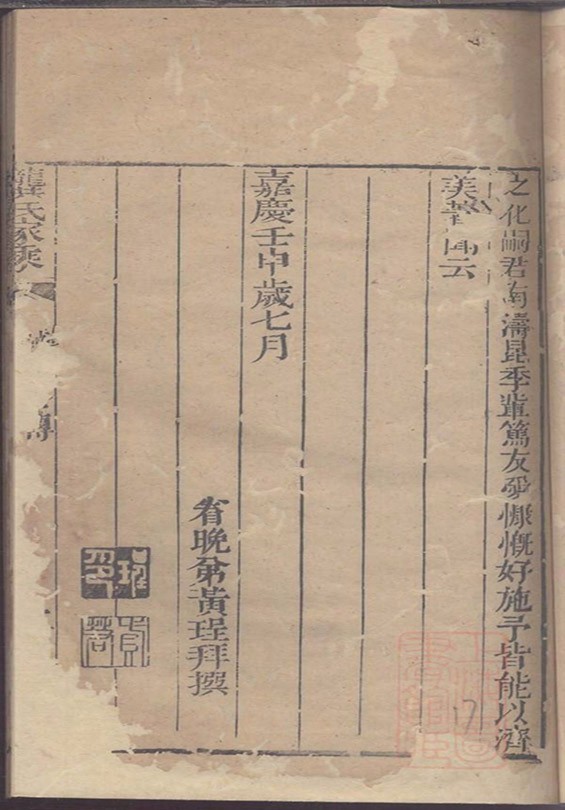 之化嗣君南濤昆季輩篤友愛慷慨好施予皆能以濟
美 云
嘉慶壬申歲七月
眷晚弟黃珵拜撰
珵印
龔氏家乘
傳
17